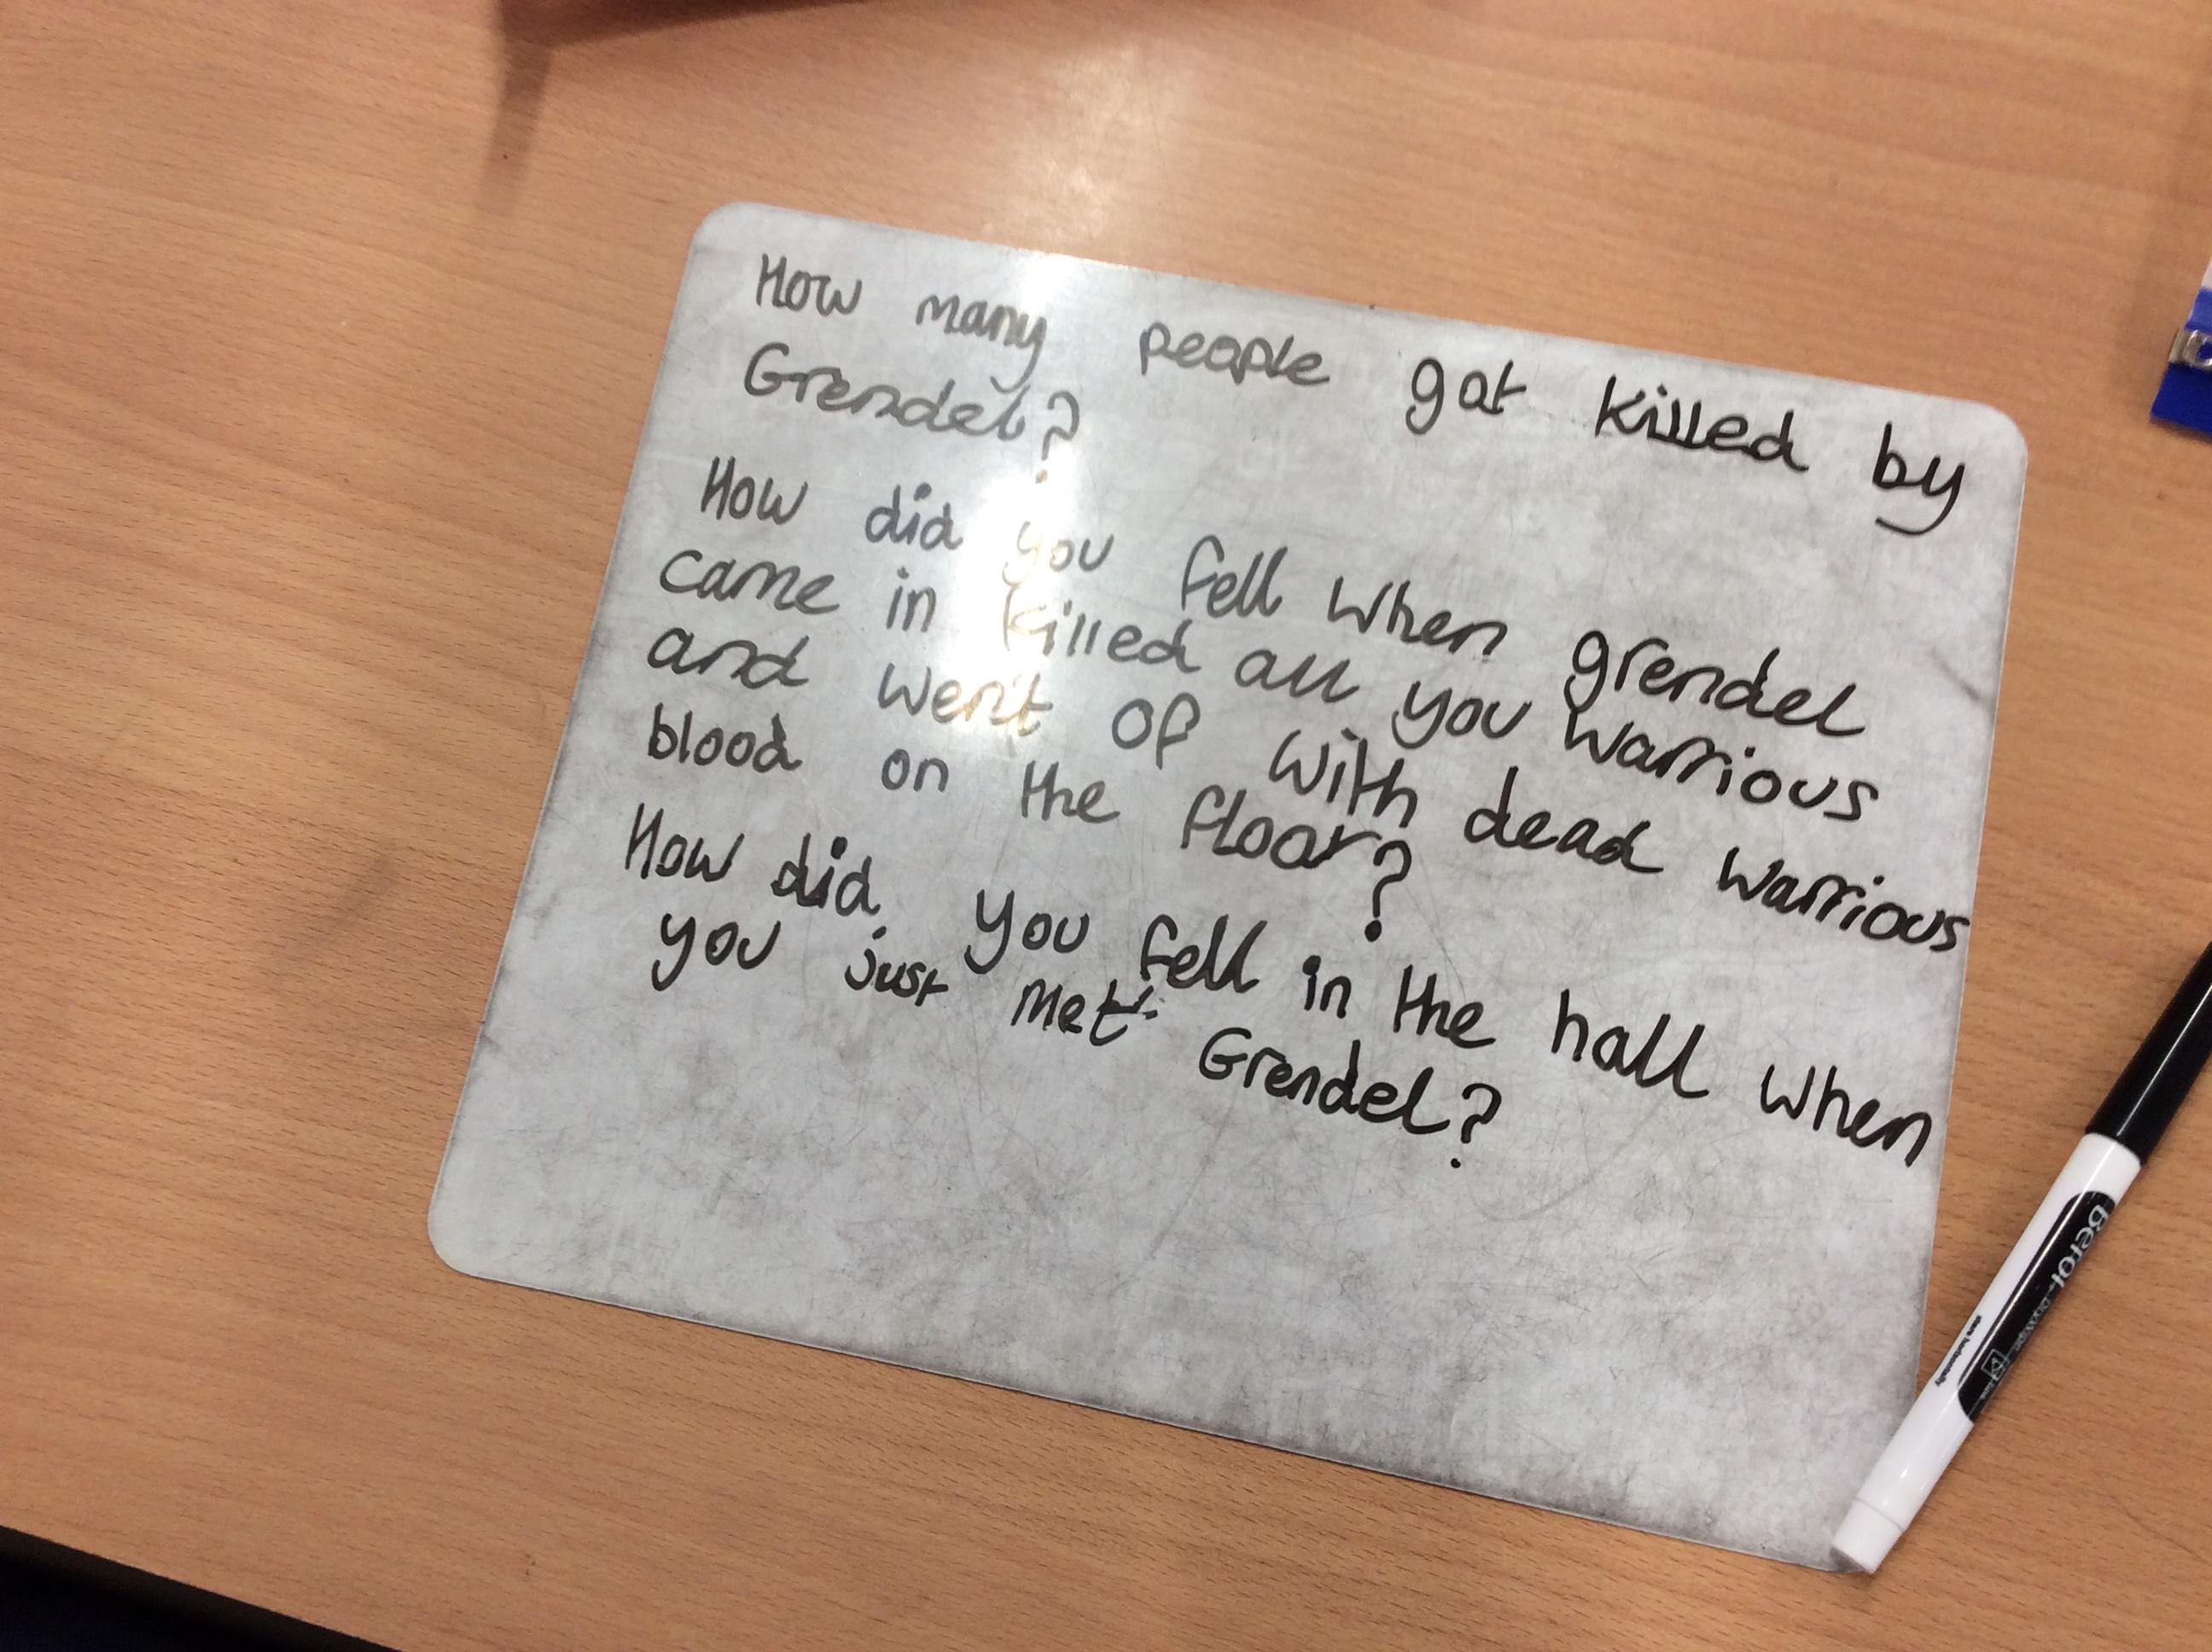 How many people got killed by
Grendel?
How did you fell when grendel
came in killed all you warrious
and went of with dead warrious
blood on the floor?
How did you fell in the hall when
you just met Grendel?
Berol